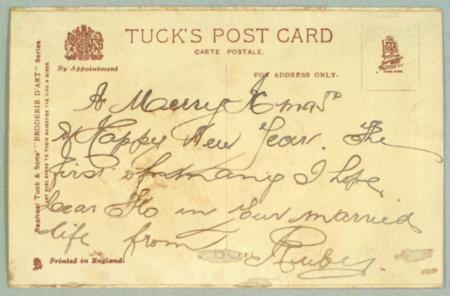 TUCK'S POST CARD
CARTE POSTALE.
By Appointment
FOR ADDRESS ONLY.
Raphael Tuck & Sons' "BRODERIE D'ART" Series.
TO THEIR MAJESTIES THE KING & QUEEN
A Merry Xmas
& Happy New Year. The
first of many I hope
dear Flo in your married
life from
Ruby.
Printed in England.